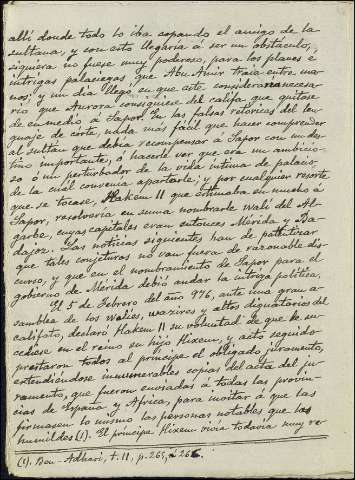 allí donde todo lo iba copando el amigo de la
sultana, y con esto llegaría á ser un obstáculo,
siquiera no fuese muy poderoso, para los planes é
intrigas palaciegas que Abu-Amir traía entre ma-
nos, y un día llegó en que éste considerara necesa-
rio que Aurora consiguiese del califa, que quitase
de enmedio á Sapor. En las falsas retóricas del len-
guaje de corte, nada más fácil que hacer comprender
al sultán que debía recompensar á Sapor con un des-
tino importante, ó hacerle ver que era un ambicio-
so ó un perturbador de la vida íntima de palacio,
de la cual convenía apartarle; y por cualquier resorte
que se tocase, Hakem II que estimaba en mucho á
Sapor, resolvería en suma nombrarle walí del Al-
garbe, cuyas capitales eran entonces Mérida y Ba-
dajoz. Las noticias siguientes han de patentizar
que tales conjeturas no van fuera de razonable dis-
curso, y que en el nombramiento de Sapor para el
gobierno de Mérida debió andar la intriga política.
El 5 de Febrero del año 976, ante una gran a-
samblea de los walíes, waxires y altos dignatarios del
califato, declaró Hakem II su voluntad de que le su-
cediese en el reino su hijo Hixem, y acto seguido
prestaron todos al príncipe el obligado juramento,
extendiéndose innumerables copias del acta del ju-
ramento, que fueron enviadas á todas las provin-
cias de España y Africa, para invitar á que las
firmasen lo mismo las personas notables que las
humildes (1). El príncipe Hixem vivía todavía muy re-
(1). Ben-Adharí, t. II, p. 265, á 266.